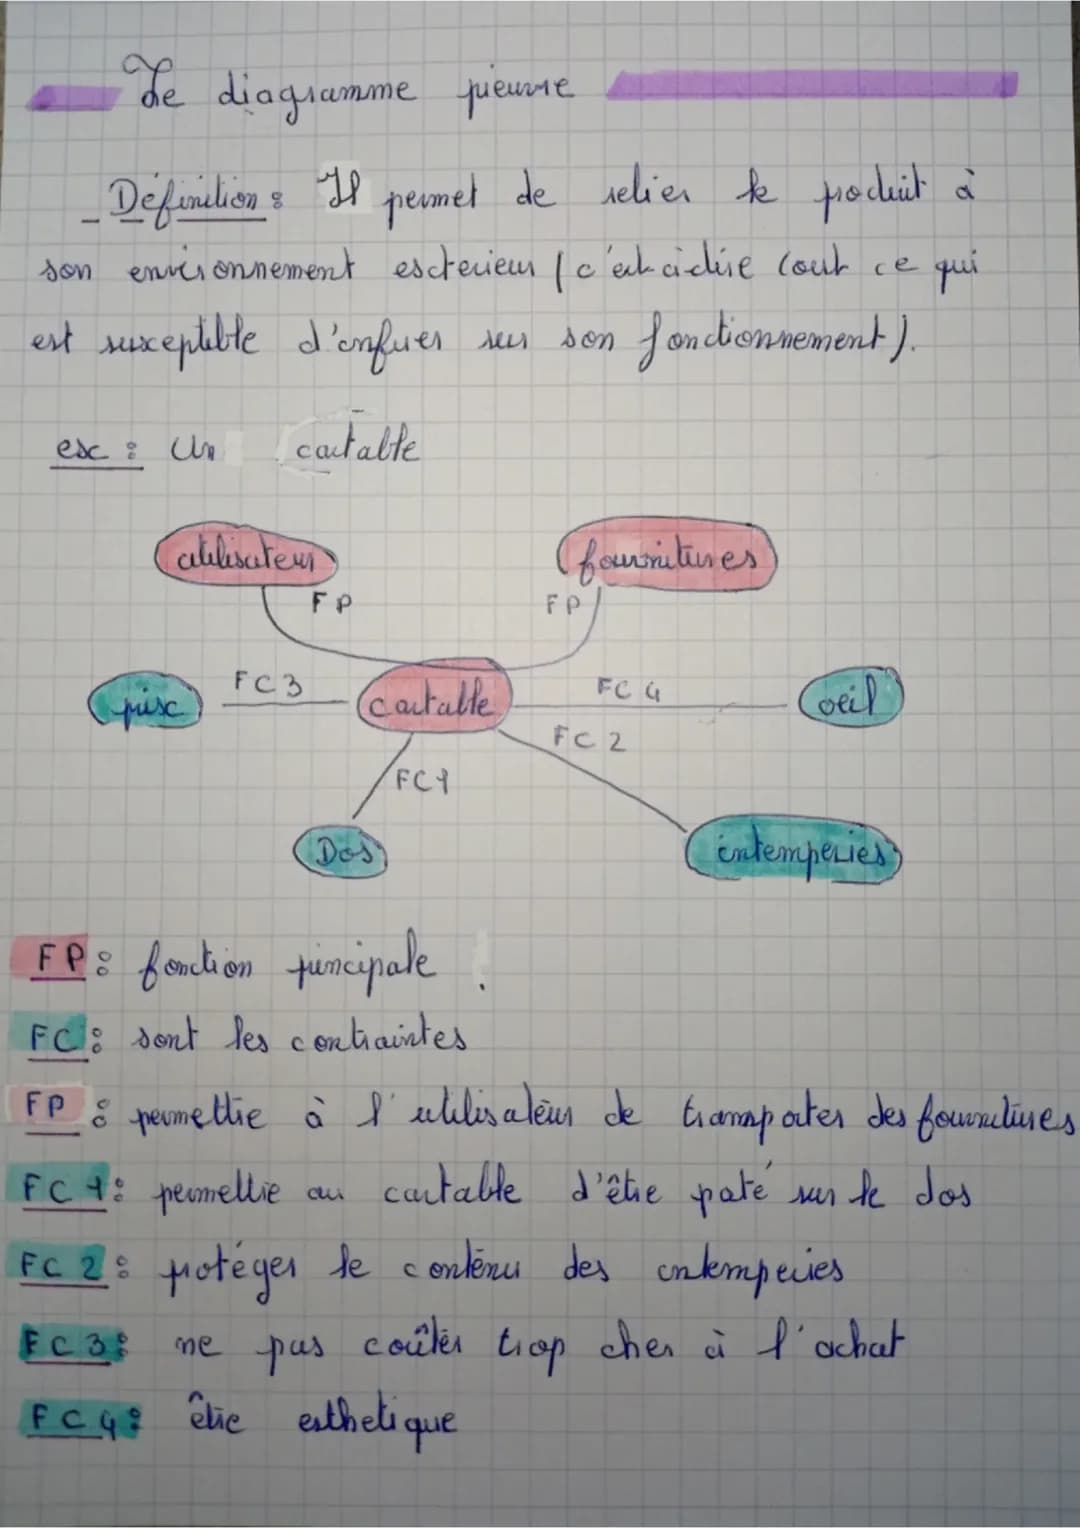 Le diagramme pieuvre
- Définition : Il permet de relier le produit à
son environnement exterieur (c'est à dire tout ce qui
est suxeptible d'enfluer sur son fonctionnement).
ex : Un cartable
utilisateur
fournitures
FP
FP
prix
FC3
cartable
FC4
oeil
FC2
FC1
Dos
intemperies
FP : fonction principale
FC : sont les contraintes
FP : permettre à l'utilisateur de transporter des fournitures
FC1 : permettre au cartable d'être porté sur le dos
FC2 : protéger le contenu des intemperies
FC3 : ne pas coûter trop cher à l'achat
FC4 : être esthetique